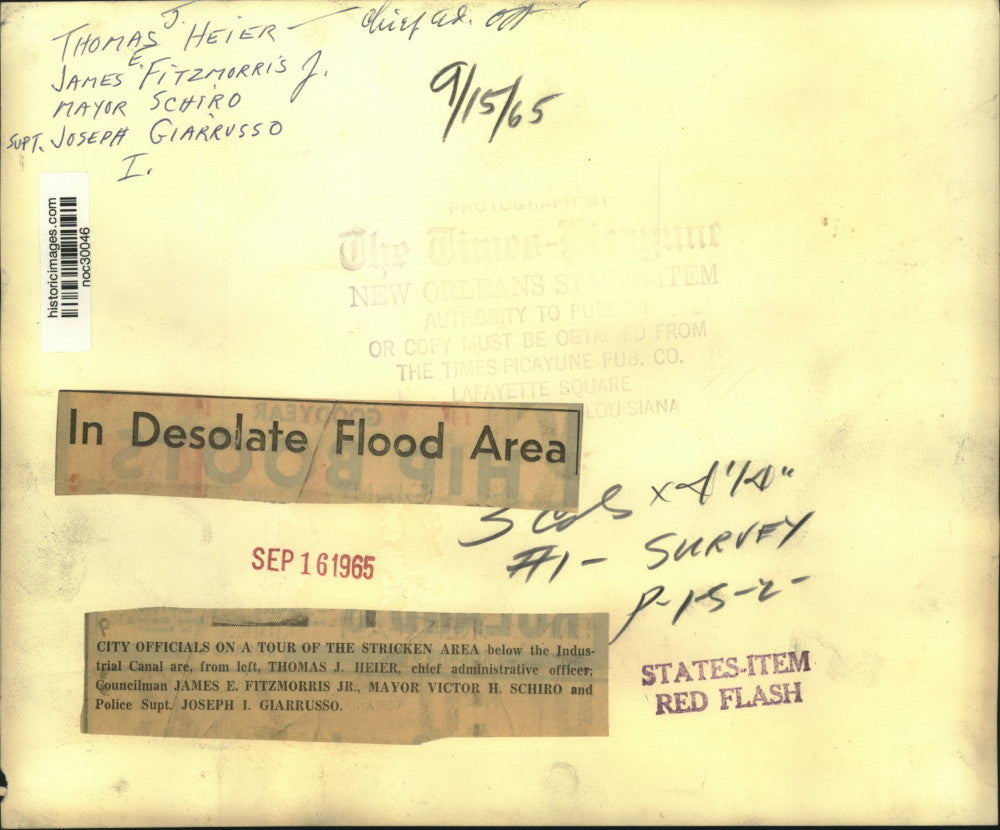 THOMAS J. HEIER — Chief ad. off
JAMES E. FITZMORRIS J.
MAYOR SCHIRO
SUPT. JOSEPH GIARRUSSO
I.
9/15/65
historicimages.com
noc30046
PHOTOGRAPH BY
The Times-Picayune
NEW ORLEANS STATES-ITEM
AUTHORITY TO PUBLISH
OR COPY MUST BE OBTAINED FROM
THE TIMES-PICAYUNE PUB. CO.
LAFAYETTE SQUARE
LOUISIANA
GOODYEAR
HIP BOOTS
In Desolate Flood Area
3 Cols x 4 1/4"
#1 - SURVEY
P-1-S-2-
SEP 16 1965
CITY OFFICIALS ON A TOUR OF THE STRICKEN AREA below the Indus-
trial Canal are, from left, THOMAS J. HEIER, chief administrative officer;
Councilman JAMES E. FITZMORRIS JR., MAYOR VICTOR H. SCHIRO and
Police Supt. JOSEPH I. GIARRUSSO.
STATES-ITEM
RED FLASH